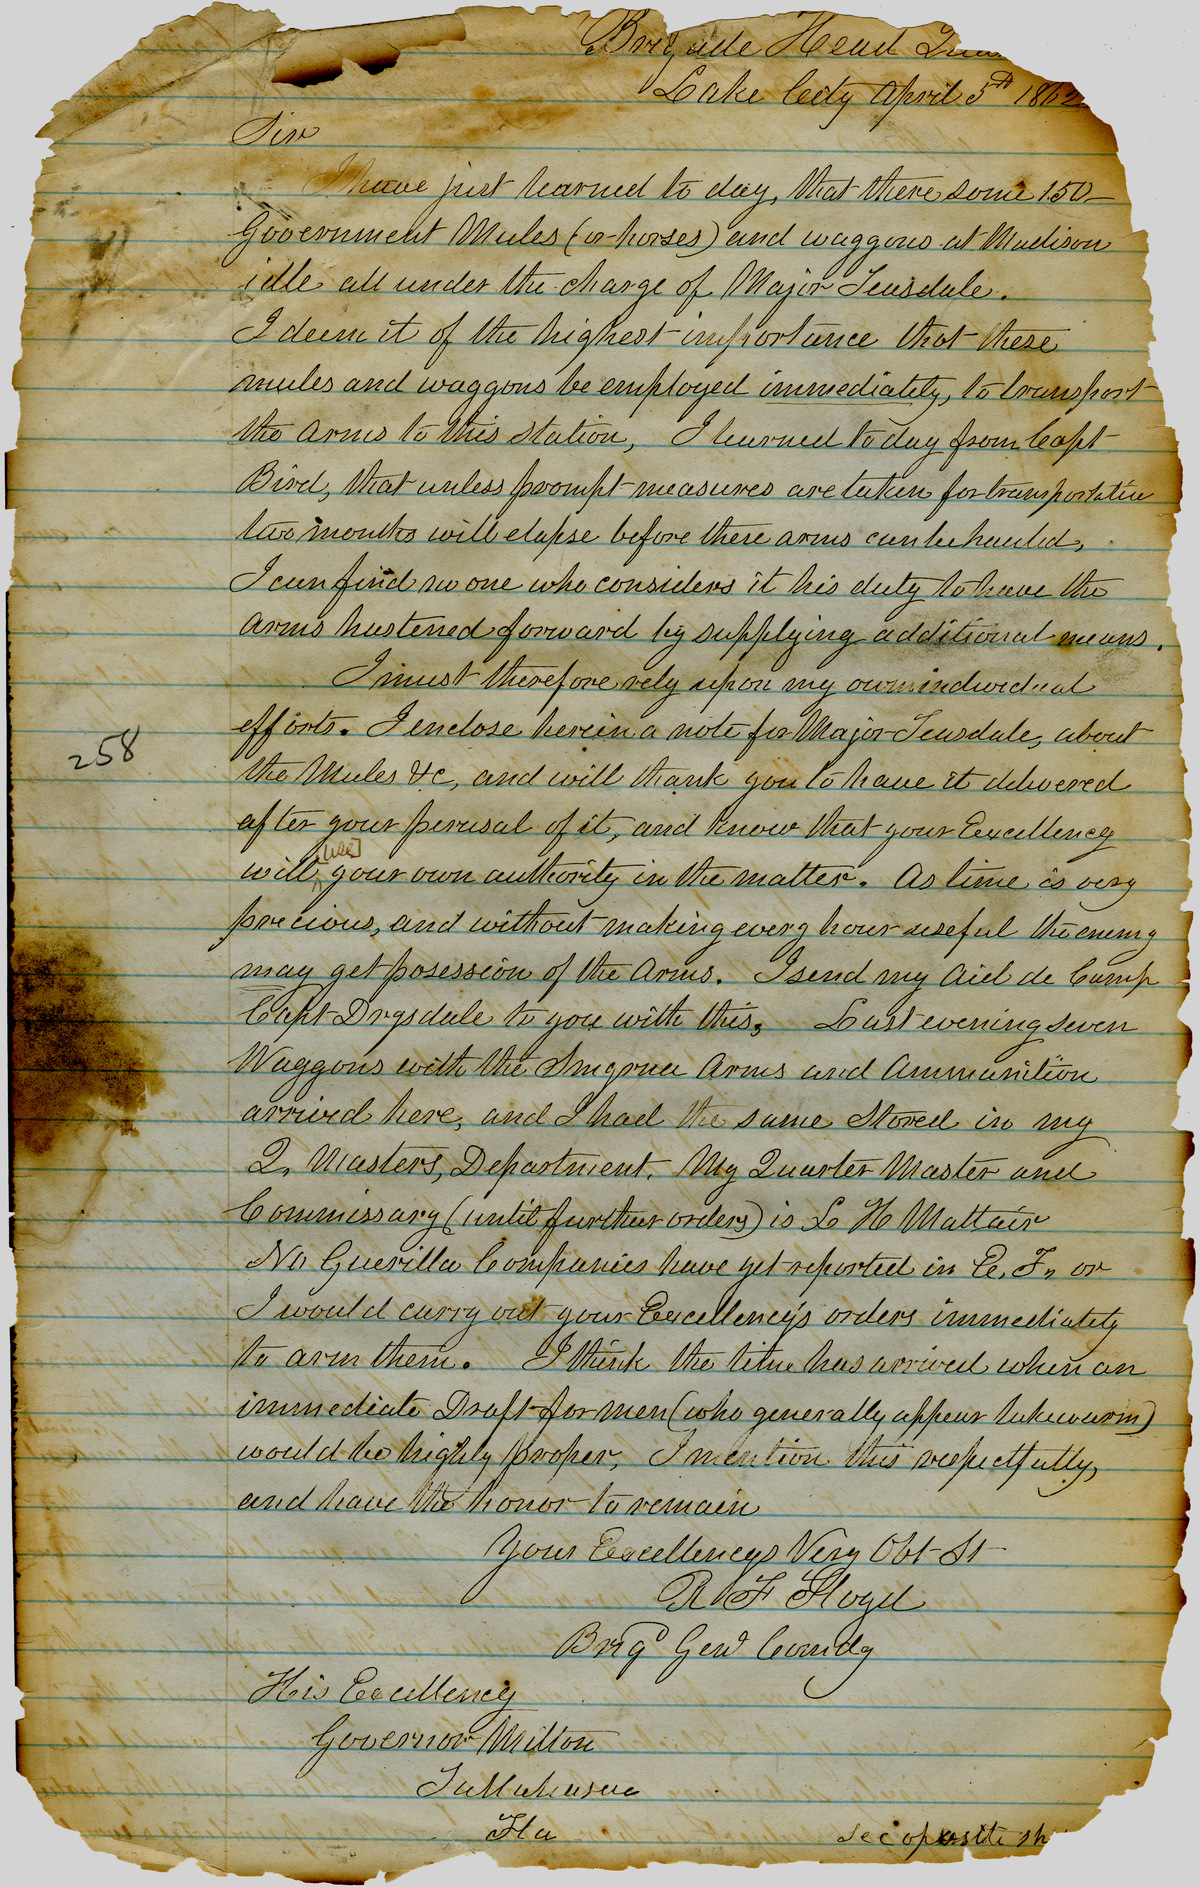 Brigade Head Qua
Lake City April 5th 1862
Sir
I have just learned to day, that there some 150
Government Mules (or horses) and waggons at Madison
idle all under the charge of Major Teasdale.
I deem it of the highest importance that these
mules and waggons be employed immediately, to transport
the Arms to this station, I learned to day from Capt
Bird, that unless prompt measures are taken for transportation
two months will elapse before these arms can be hauled,
I can find no one who considers it his duty to have the
arms hastened forward by supplying additional means.
I must therefore rely upon my own individual
efforts. I enclose herein a note for Major Teasdale, about
258
the Mules &c, and will thank you to have it delivered
after your perusal of it, and know that your Excellency
will [use] your own authority in the matter. As time is very
precious, and without making every hour useful the enemy
may get posession of the Arms. I send my Aid de Camp
Capt Drysdale to you with this, Last evening seven
Waggons with the Smyrna Arms and Ammunition
arrived here, and I had the same Stored in my
Q, Masters, Department. My Quarter Master and
Commissary (until further orders) is L H Mattair
No Guerilla Companies have yet reported in E. F., or
I would carry out your Excellency's orders immediately
to arm them. I think the time has arrived when an
immediate Draft for men (who generally appear lukewarm)
would be highly proper, I mention this respectfully,
and have the honor to remain
Your Excellencys Very Obt St
R F Floyd
Brigd Genl Comdg
His Excellency
Governor Milton
Tallahassee
Fla
see oposite sh